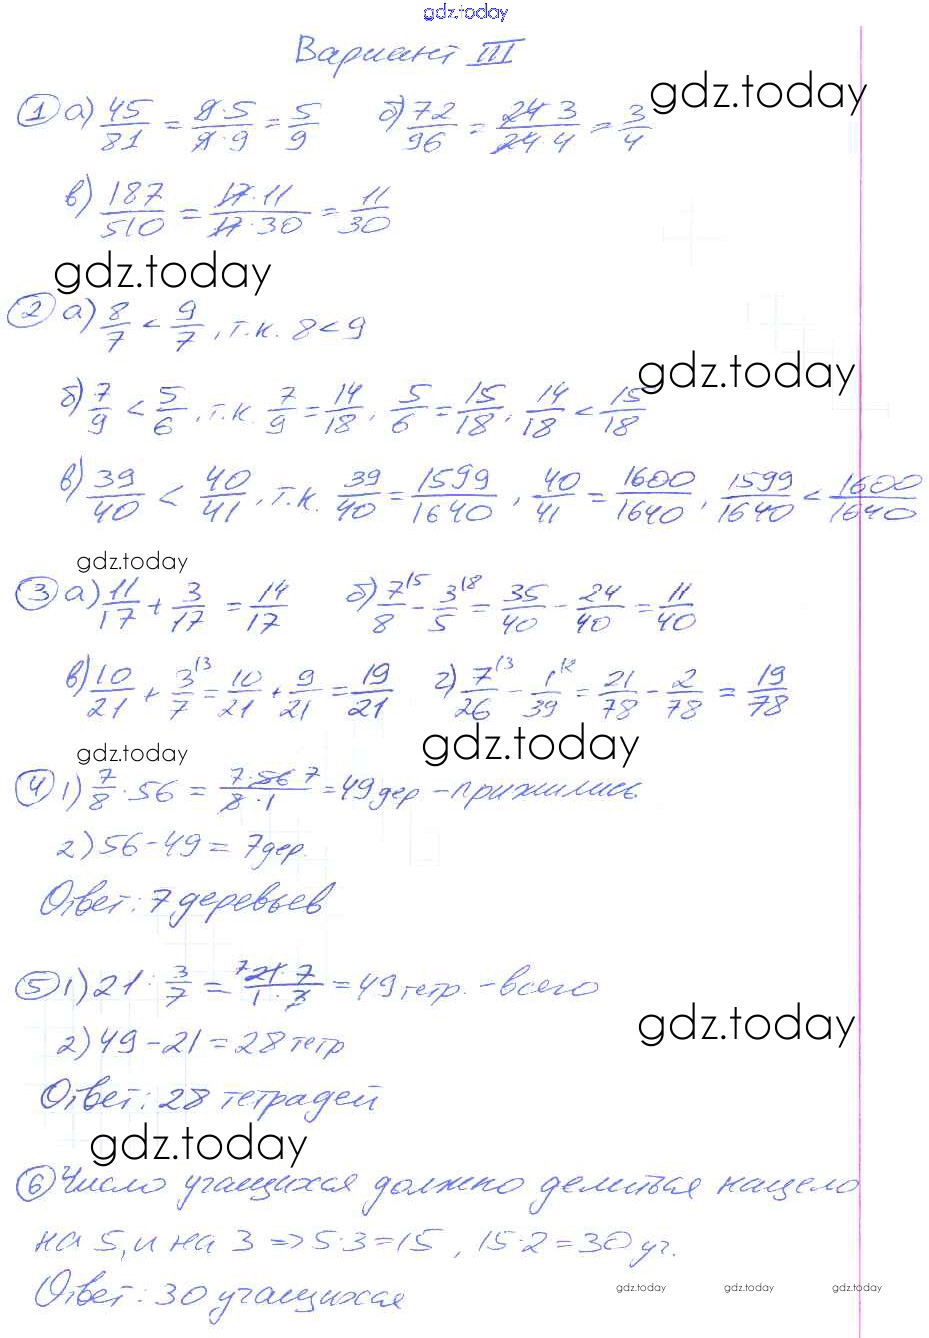 gdz.today
Вариант III
gdz.today
① а) 45/81 = 9·5/9·9 = 5/9 б) 72/96 = 24·3/24·4 = 3/4
в) 187/510 = 17·11/17·30 = 11/30
gdz.today
② а) 8/7 < 9/7, т.к. 8 < 9
gdz.today
б) 7/9 < 5/6, т.к. 7/9 = 14/18, 5/6 = 15/18, 14/18 < 15/18
в) 39/40 < 40/41, т.к. 39/40 = 1599/1640, 40/41 = 1600/1640, 1599/1640 < 1600/1640
gdz.today
③ а) 11/17 + 3/17 = 14/17 б) 7/8 |5 - 3/5 |8 = 35/40 - 24/40 = 11/40
в) 10/21 + 3/7 |3 = 10/21 + 9/21 = 19/21 г) 7/26 |3 - 1/39 |2 = 21/78 - 2/78 = 19/78
gdz.today
gdz.today
④ 1) 7/8 · 56 = 7·56 7/8·1 = 49 дер - прижились
2) 56 - 49 = 7 дер.
Ответ: 7 деревьев
⑤ 1) 21 : 3/7 = 7 21·7/1·3 = 49 тетр. - всего
gdz.today
2) 49 - 21 = 28 тетр
Ответ: 28 тетрадей
gdz.today
⑥ Число учащихся должно делиться нацело
на 5, и на 3 => 5·3 = 15, 15·2 = 30 уч.
gdz.today gdz.today gdz.today
Ответ: 30 учащихся